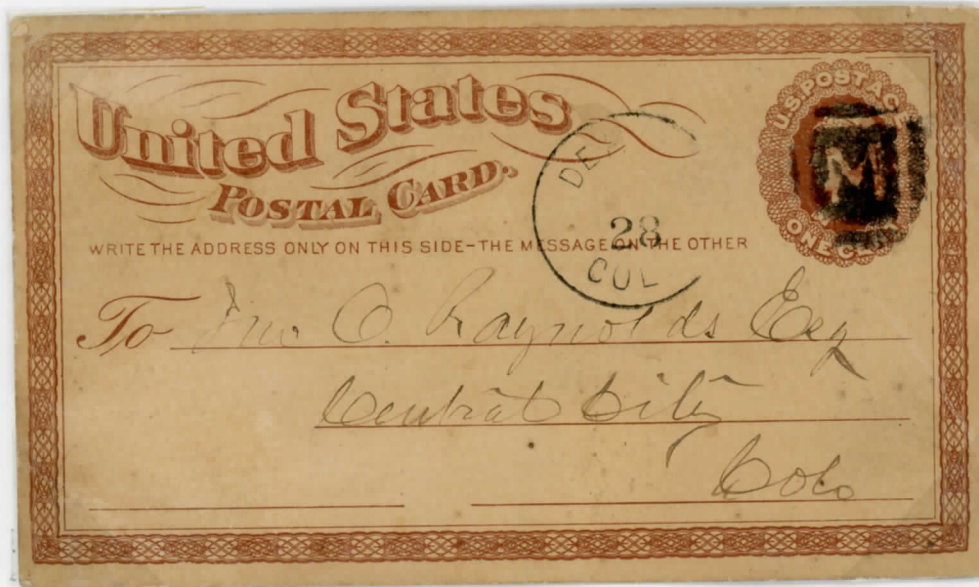 United States
POSTAL CARD.
WRITE THE ADDRESS ONLY ON THIS SIDE-THE MESSAGE ON THE OTHER
U.S. POSTAG
ONE CE
M
DEN
28
COL
To Jno. O. Raynolds Esq
Central City
Colo